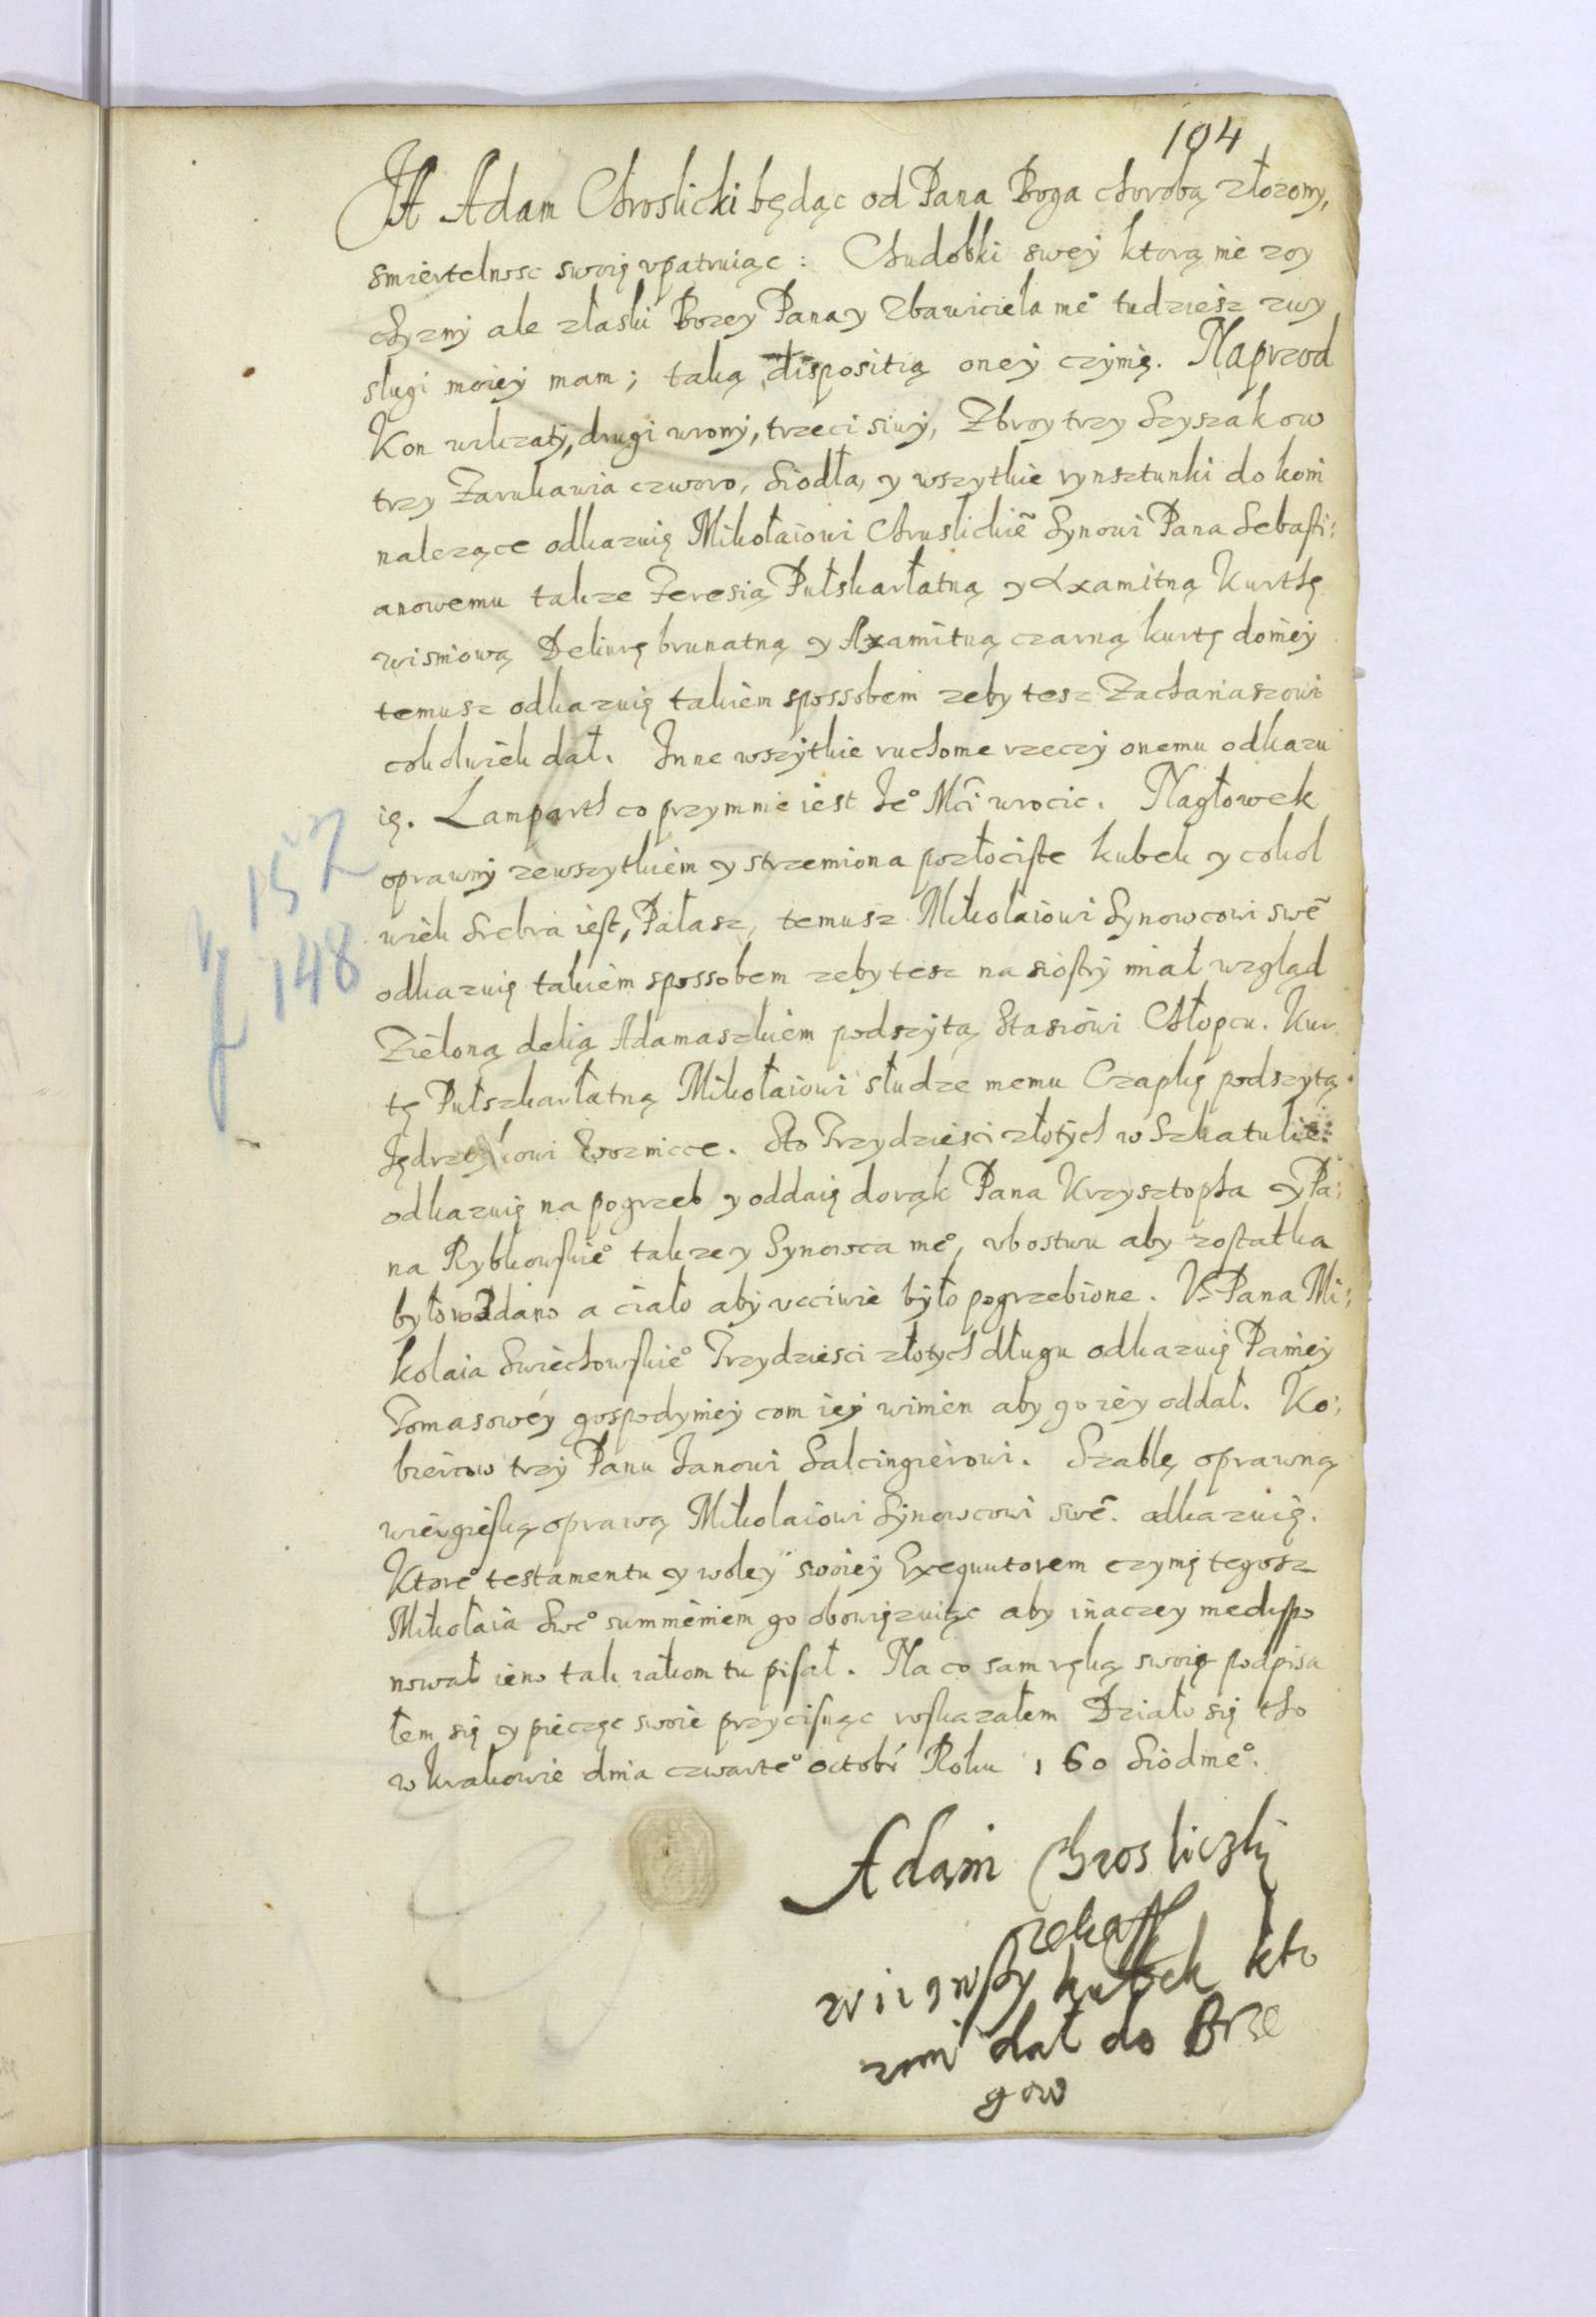 104
JA Adam Chroslicki będąc od Pana Boga chorobą złozony,
smiertelnosc swoię vpatruiąc: Chudobki swey ktorą nie zoy
chyzny ale złaski Bozey Pana y Zbawiciela me° tudziesz zwy
slugi moiey mam; taką dispositią oney czynię. Naprzod
Kon wilczaty, drugi wrony, trzeci siwy, Zbroy trzy Szyszakow
trzy Zarukawia czworo, Siodła, y wszytkie rynsztunki do koni
nalezące odkazuię Mikołaiowi Chruslickie~ Synowi Pana Sebasti:
anowemu takze Feresią Pułskarłatną y Axamitną Kurthę
wisniową Deliurę brunatną y Axamitną czarną kurtę doniey
temusz odkazuię takiem spossobem zeby tesz Zachariaszowi
cokolwiek dał. Inne wszytkie ruchome rzeczy onemu odkazu
ię. Lamparth co przymnie iest Je° Mći wrocic. Nagłowek
oprawny zewszytkiem y strzemiona pozłociste kubek y cokol
wiek Srebra iest, Pałasz, temusz Mikolaiowi Synowcowi swe~
odkazuię takiem spossobem zeby tesz na siostry miał wzgląd
Zieloną delią Adamaszkiem podszytą Stasiowi Chłopcu. Kur
tę Pułszkarłatną Mikołaiowi słudze memu Czapkę podszytą
Woznicce. Sto Trzydziesci złotych w Szkatulie:
odkazuię na pogrzeb y oddaię dorąk Pana Krzysztopha y Pa:
na Rybkowskie° takze y Synowca me°, vbostwu aby zostatka
było oddano a ciało aby vcciwie było pogrzebione. V Pana Mi:
kolaia Swiechowskie° Trzydziesci złotych długu odkazuię Paniey
Tomasowey gospodyniey com iey winien aby go iey oddał. Ko:
biercow trzy Panu Janowi Salcingierowi. Szablę oprawną
więrgieską oprawą Mikolaiowi Synowcowi swe~. odkazuię.
Ktore° testamentu y woley swoiey Exequutorem czynię tegosz
Mikołaia Swe° summieniem go obowięzuiąc aby inaczey niedispo
nował ieno tak iakom tu pisał. Na co sam ręką swoię podpisa
łem się y pieczęc swoie przycisnąc roskazałem Działo się tho
w Krakowie dnia czwarte° octobr Roku 160 Siodme°.
Adam Chrosliczky
ręką
kubek kto
dał do Brze
gow
152
148